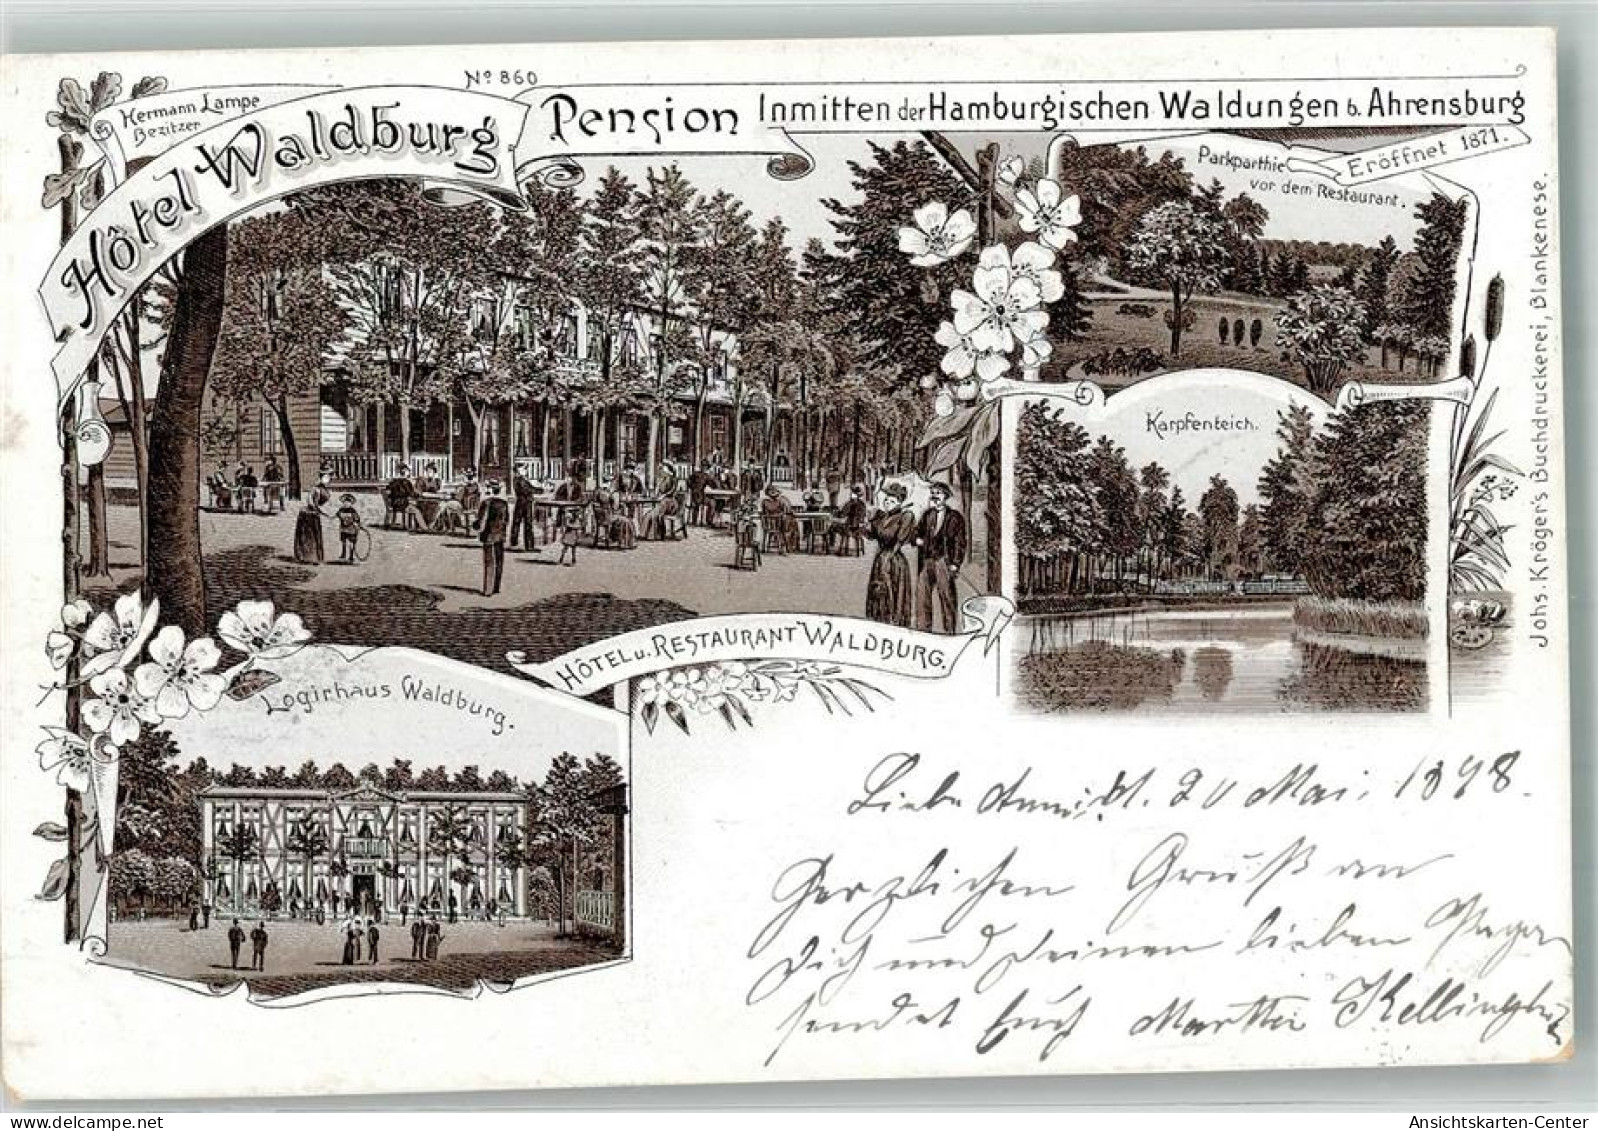 Nº 860
Hermann Lampe
Bezitzer
Hôtel Waldburg.
Pension Inmitten der Hamburgischen Waldungen b. Ahrensburg
Eröffnet 1871.
Parkparthie
vor dem Restaurant.
Karpfenteich.
HÔTEL u. RESTAURANT WALDBURG.
Logirhaus Waldburg.
Johs. Kröger's Buchdruckerei, Blankenese.
Liebe 20 Mai. 1898.
Herzlichen Gruß an
Dich und Deinen lieben
sendet Euch
AnsichtsKarten-Center